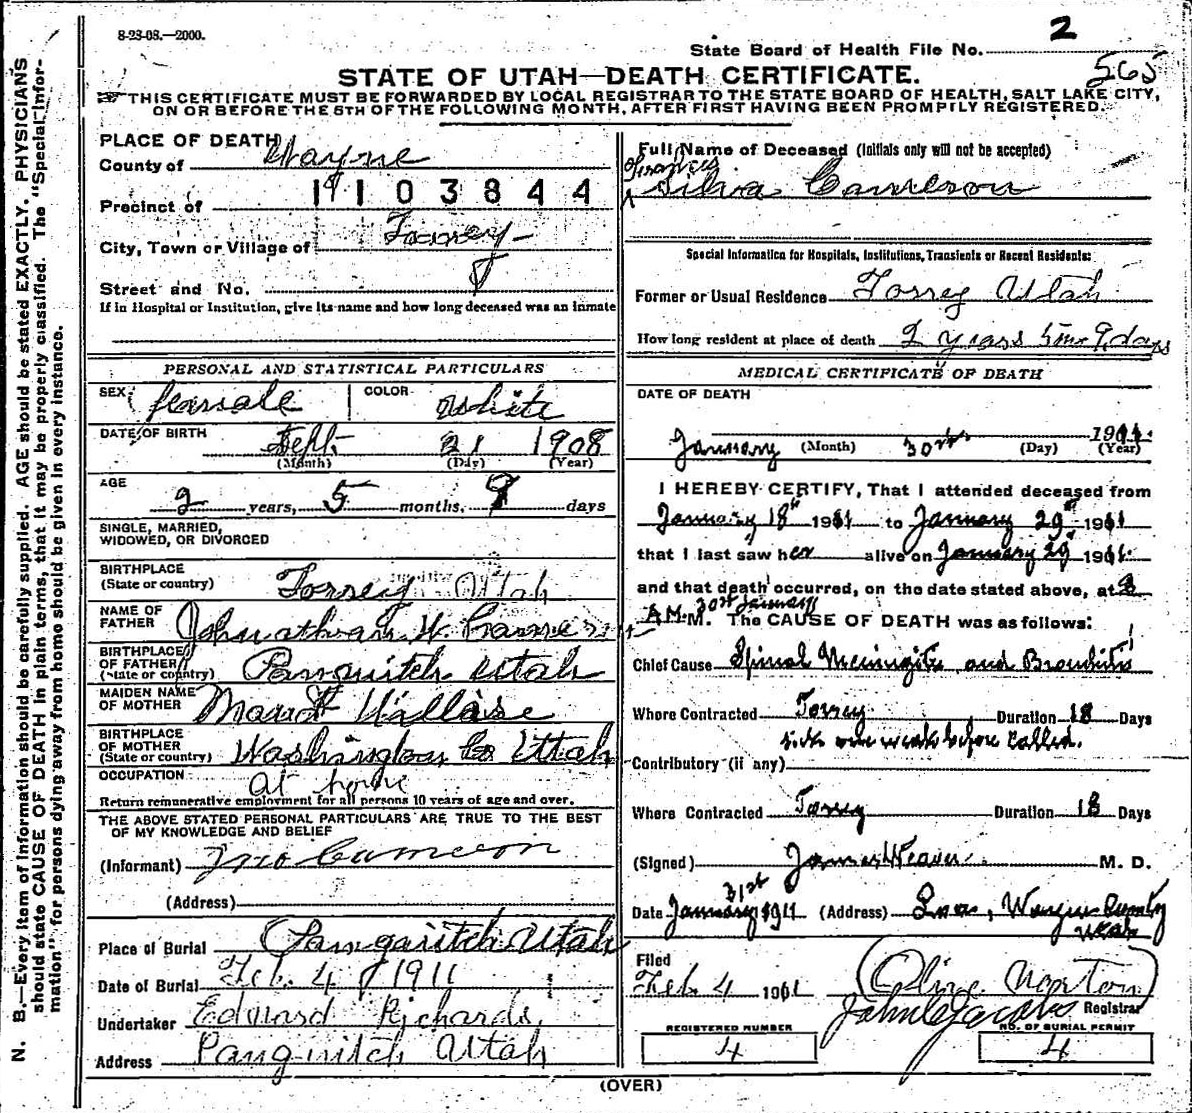 8-23-08.—2000.
2
State Board of Health File No.
565
STATE OF UTAH—DEATH CERTIFICATE.
THIS CERTIFICATE MUST BE FORWARDED BY LOCAL REGISTRAR TO THE STATE BOARD OF HEALTH, SALT LAKE CITY,
ON OR BEFORE THE 5TH OF THE FOLLOWING MONTH, AFTER FIRST HAVING BEEN PROMPTLY REGISTERED.
N. B.—Every item of information should be carefully supplied. AGE should be stated EXACTLY. PHYSICIANS
should state CAUSE OF DEATH in plain terms, that it may be properly classified. The "Special Infor-
mation" for persons dying away from home should be given in every instance.
PLACE OF DEATH
County of Wayne
1103844
Precinct of
City, Town or Village of Torrey
Street and No.
If in Hospital or Institution, give its name and how long deceased was an inmate
PERSONAL AND STATISTICAL PARTICULARS
SEX female COLOR White
DATE OF BIRTH Sept. 21 1908
(Month) (Day) (Year)
AGE
2 years, 5 months, 9 days
SINGLE, MARRIED,
WIDOWED, OR DIVORCED
BIRTHPLACE
(State or country) Torrey Utah
NAME OF
FATHER Johnathan W. Cameron
BIRTHPLACE
OF FATHER
(State or country) Panguitch Utah
MAIDEN NAME
OF MOTHER
BIRTHPLACE
OF MOTHER
(State or country) Washington Co Uttah
OCCUPATION At home
Return remunerative employment for all persons 10 years of age and over.
THE ABOVE STATED PERSONAL PARTICULARS ARE TRUE TO THE BEST
OF MY KNOWLEDGE AND BELIEF
(Informant) Jno Cameron
(Address)
Place of Burial Panguitch Utah
Date of Burial Feb. 4 1911
Undertaker Edward Richards
Address Panguitch Utah
Full Name of Deceased (Initials only will not be accepted)
Frances
Silva Cameron
Special Information for Hospitals, Institutions, Transients or Recent Residents:
Former or Usual Residence Torrey Utah
How long resident at place of death 2 years 5 mo 9 days
MEDICAL CERTIFICATE OF DEATH
DATE OF DEATH
January (Month) 30th (Day) 1911 (Year)
I HEREBY CERTIFY, That I attended deceased from
January 18th 1911 to January 29th 1911
that I last saw her alive on January 29th 1911
and that death occurred, on the date stated above, at 2
A.M. 30th January
M. The CAUSE OF DEATH was as follows:
Chief Cause Spinal Meningitis and Bronchitis
Where Contracted Torrey Duration 18 Days
sick one week before called.
Contributory (if any)
Where Contracted Torrey Duration 18 Days
(Signed) James Weaver M. D.
Date January 31st 1911 (Address) Loa, Wayne County
Utah
Filed
Feb. 4 1911 Olive Norton
John E Jacobs Registrar
REGISTERED NUMBER
4
NO. OF BURIAL PERMIT
4
(OVER)